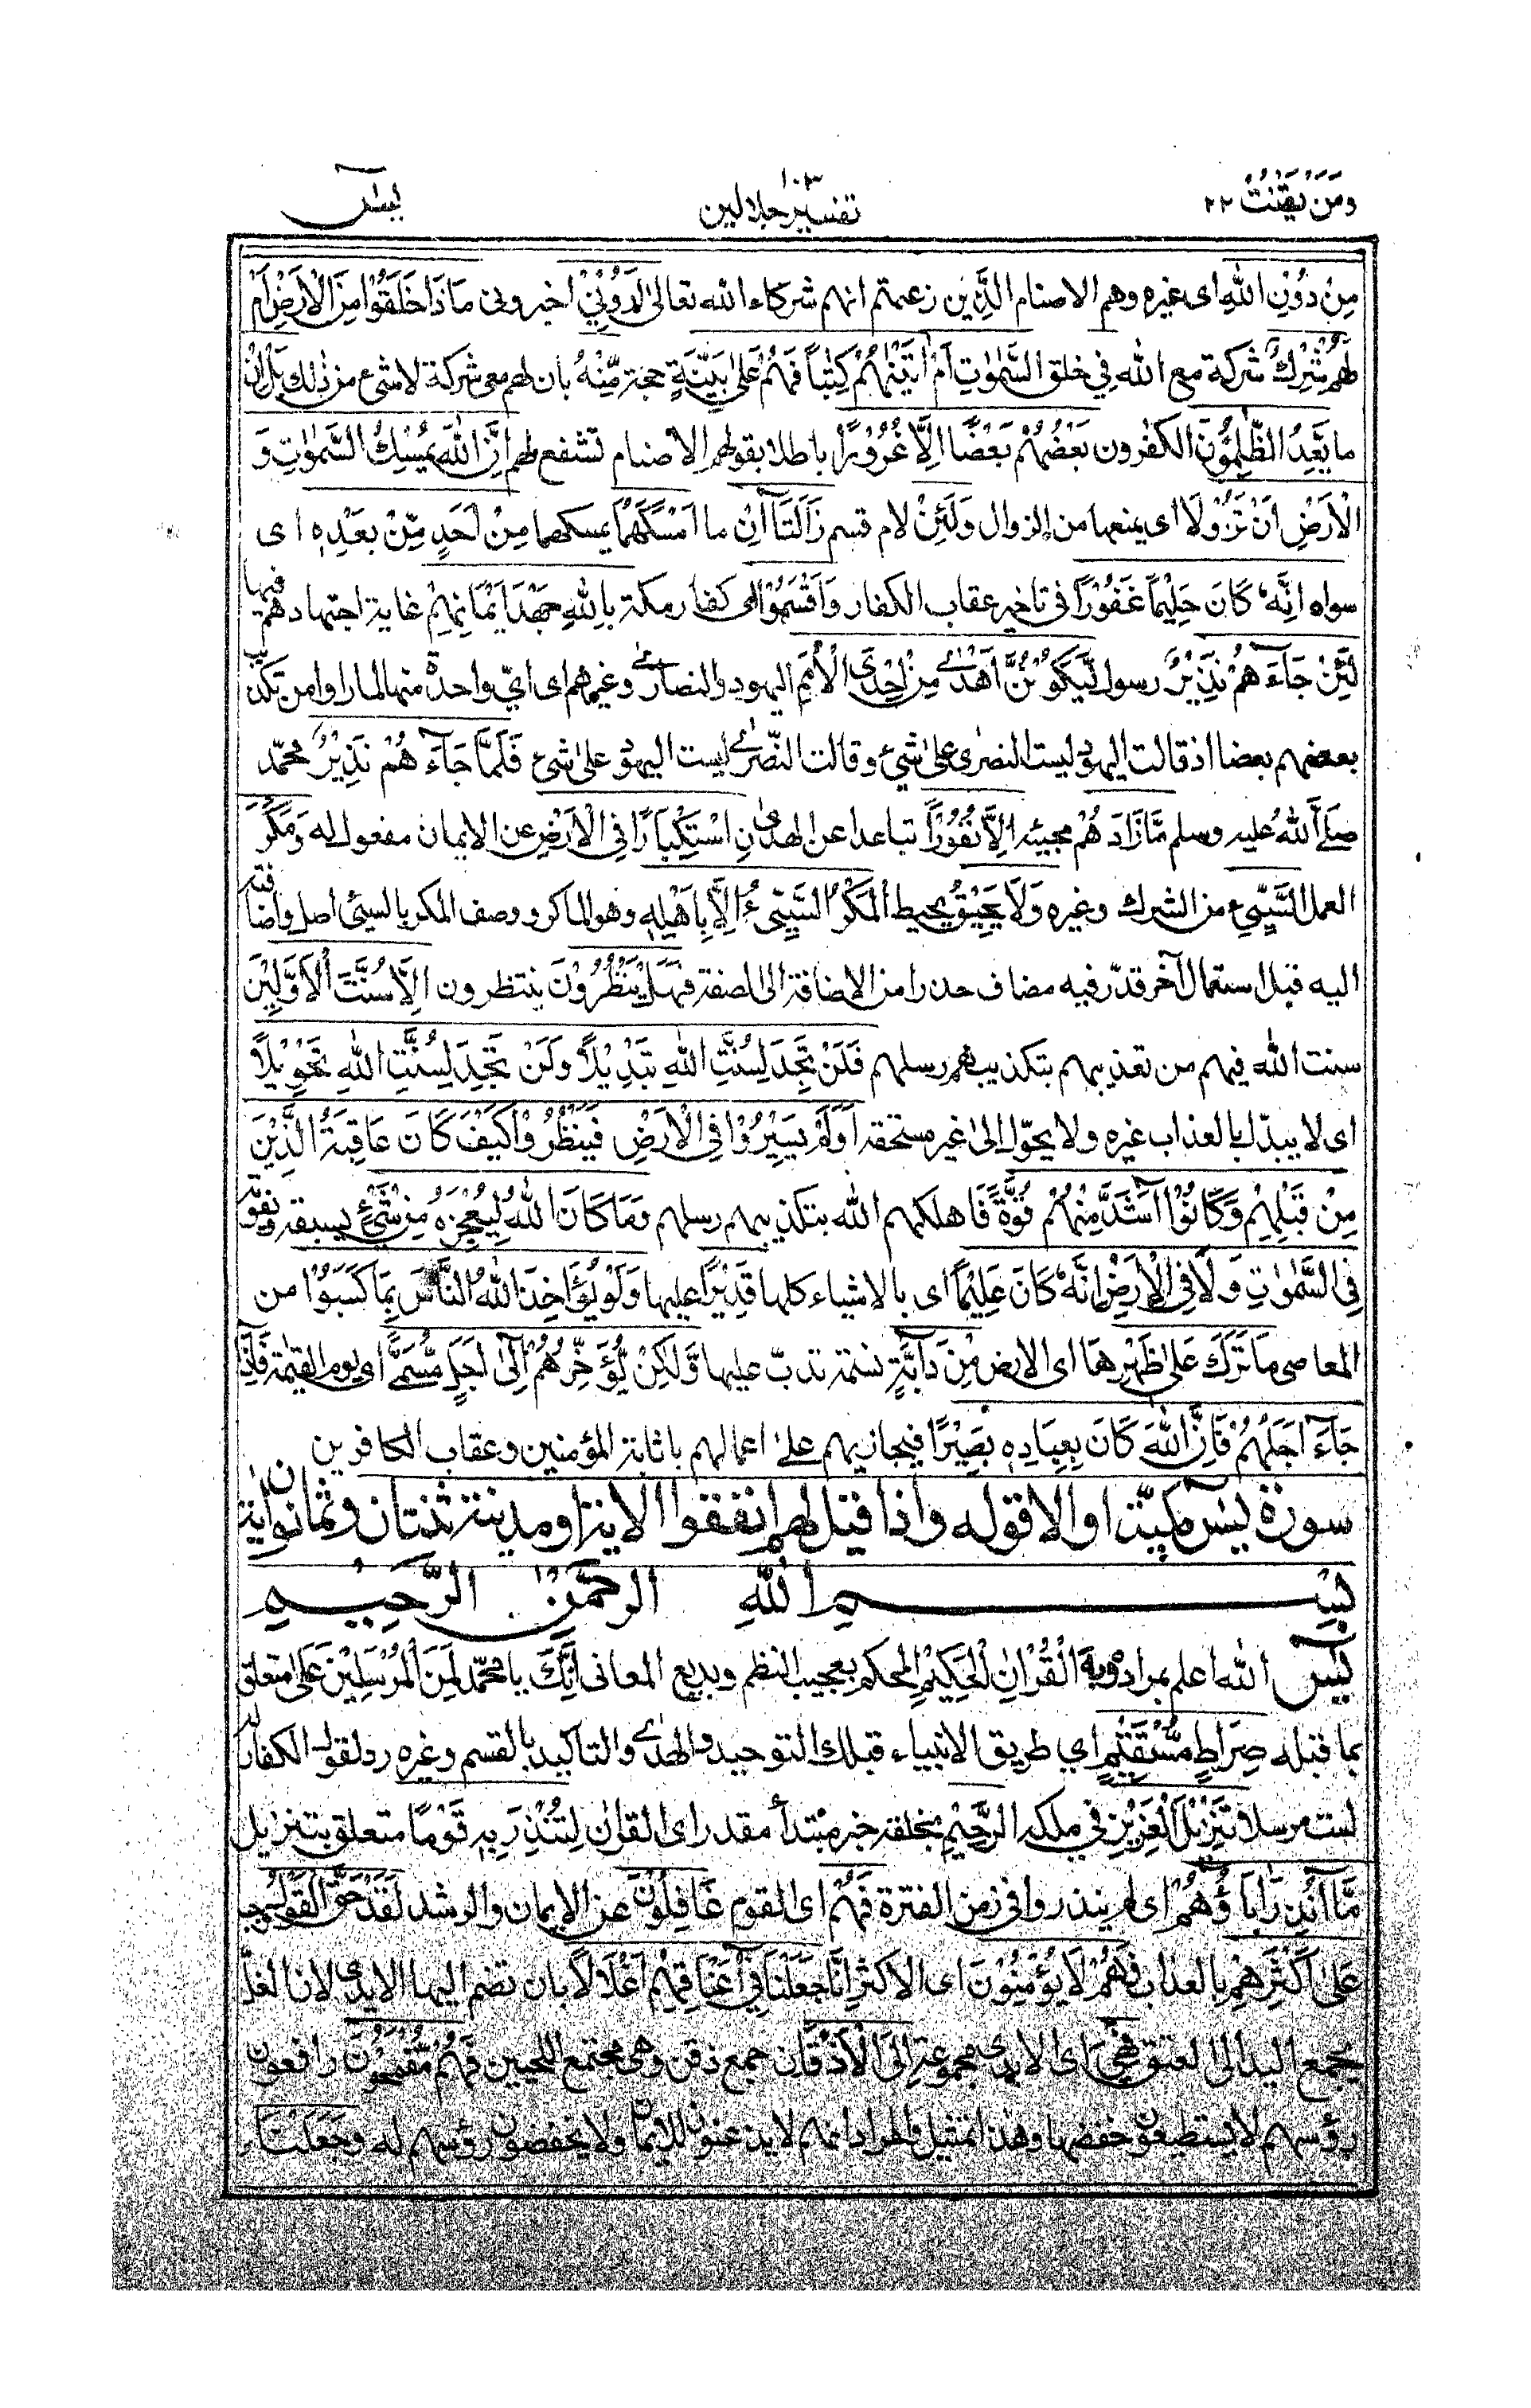 ومن يقنت ٢٢
١٠٣
تفسير جلالين
يٰسٓ
مِنْ دُوْنِ اللّٰهِ اى غيره وهم الاصنام الَّذِيْن زعمتم انهم شركاء الله تعالىٰ اَرُوْنِيْ اخبرونى مَاذَا خَلَقُوْا مِنَ الْاَرْضِ اَمْ
لَهُمْ شِرْكٌ شركة مع الله فِي خلق السَّمٰوٰتِ اَمْ اٰتَيْنٰهُمْ كِتٰبًا فَهُمْ عَلىٰ بَيِّنَةٍ حجة مِّنْهُ بان لهم معى شركة لا شىء من ذلك بَلْ اِنْ
ما يَّعِدُ الظّٰلِمُوْنَ الكفرون بَعْضُهُمْ بَعْضًا اِلَّا غُرُوْرًا باطلا بقولهم الاصنام تشفع لهم اِنَّ اللّٰهَ يُمْسِكُ السَّمٰوٰتِ وَ
الْاَرْضَ اَنْ تَزُوْلَا اى يمنعها من الزوال وَلَئِنْ لام قسم زَالَتَآ اِنْ ما اَمْسَكَهُمَا يمسكهما مِنْ اَحَدٍ مِّنْ بَعْدِهٖ اى
سواه اِنَّهٗ كَانَ حَلِيْمًا غَفُوْرًا فى تاخير عقاب الكفار وَاَقْسَمُوْا اى كفار مكة بِاللّٰهِ جَهْدَ اَيْمَانِهِمْ غاية اجتهادهم فيها
لَئِنْ جَآءَهُمْ نَذِيْرٌ رسول لَّيَكُوْنُنَّ اَهْدٰى مِنْ اِحْدَى الْاُمَمِ اليهود والنصارىٰ وغيرهم اى اىّ واحدة منها لما راوا من تكذيب
بعضهم بعضا اذ قالت اليهود ليست النصرى على شىء وقالت النّصرىٰ ليست اليهود علىٰ شىء فَلَمَّا جَآءَهُمْ نَذِيْرٌ محمّد
صَلَّى اللّٰهُ عليه وسلم مَّا زَادَهُمْ مجيئه اِلَّا نُفُوْرًا تباعدا عن الهدى نِ اسْتِكْبَارًا فِى الْاَرْضِ عن الايمان مفعول له وَمَكْرَ
العمل السَّيِّئِ من الشرك وغيره وَلَا يَحِيْقُ يحيط الْمَكْرُ السَّيِّئُ اِلَّا بِاَهْلِهٖ وهو الماكر ووصف المكر بالسيئى اصل واضافته
اليه قبل استعمال آخر قدّر فيه مضاف حذرا من الاضافة الى الصفة فَهَلْ يَنْظُرُوْنَ ينتظرون اِلَّا سُنَّتَ الْاَوَّلِيْنَ
سنت اللّٰه فيهم من تعذيبهم بتكذيبهم رسلهم فَلَنْ تَجِدَ لِسُنَّتِ اللّٰهِ تَبْدِيْلًا وَلَنْ تَجِدَ لِسُنَّتِ اللّٰهِ تَحْوِيْلًا
اى لا يبدّل بالعذاب غيره ولا يحوّل الىٰ غير مستحقه اَوَلَمْ يَسِيْرُوْا فِى الْاَرْضِ فَيَنْظُرُوْا كَيْفَ كَانَ عَاقِبَةُ الَّذِيْنَ
مِنْ قَبْلِهِمْ وَكَانُوْا اَشَدَّ مِنْهُمْ قُوَّةً فاهلكهم الله بتكذيبهم رسلهم وَمَا كَانَ اللّٰهُ لِيُعْجِزَهٗ مِنْ شَىْءٍ يسبقه ويفوته
فِى السَّمٰوٰتِ وَلَا فِى الْاَرْضِ اِنَّهٗ كَانَ عَلِيْمًا اى بالاشياء كلها قَدِيْرًا عليها وَلَوْ يُؤَاخِذُ اللّٰهُ النَّاسَ بِمَا كَسَبُوْا من
المعاصى مَا تَرَكَ عَلىٰ ظَهْرِهَا اى الارض مِنْ دَآبَّةٍ نسمة تدبّ عليها وَّلٰكِنْ يُّؤَخِّرُهُمْ اِلٰى اَجَلٍ مُّسَمًّى اى يوم القيٰمة فَاِذَا
جَآءَ اَجَلُهُمْ فَاِنَّ اللّٰهَ كَانَ بِعِبَادِهٖ بَصِيْرًا فيجازيهم علىٰ اعمالهم باثابة المؤمنين وعقاب الكافرين
سورة يٰسٓ مكيّة او الا قوله واذا قيل لهم انفقوا الاية او مدنية ثنتان وثمانون اية
بِسْمِ اللّٰهِ الرحْمٰنِ الرَّحِيْمِ
يٰسٓ اللّٰه اعلم بمراده به وَالْقُرْاٰنِ الْحَكِيْمِ المحكم بعجيب النظم وبديع المعانى اِنَّكَ يا محمّد لَمِنَ الْمُرْسَلِيْنَ عَلىٰ متعلق
بما قبله صِرَاطٍ مُّسْتَقِيْمٍ اي طريق الانبياء قبلك التوحيد والهدىٰ والتاكيد بالقسم وغيره رد لقول الكفار له
لست مرسلا تَنْزِيْلَ الْعَزِيْزِ في ملكه الرَّحِيْمِ بخلقه خبر مبتدأ مقدر اى القراٰن لِتُنْذِرَ بِهٖ قَوْمًا متعلق بتنزيل
مَّآ اُنْذِرَ اٰبَاؤُهُمْ اى لم ينذروا فى زمن الفترة فَهُمْ اى القوم غَافِلُوْنَ عن الايمان والرشد لَقَدْ حَقَّ الْقَوْلُ وجب
عَلىٰ اَكْثَرِهِمْ بالعذاب فَهُمْ لَا يُؤْمِنُوْنَ اى الاكثر اِنَّا جَعَلْنَا فِىْٓ اَعْنَاقِهِمْ اَغْلَالًا بان تضم اليها الايدى لان الغلّ
يجمع اليد الى العنق فَهِىَ اى الايدى مجموعة اِلَى الْاَذْقَانِ جمع ذقن وهى مجتمع اللحيين فَهُمْ مُّقْمَحُوْنَ رافعون
رؤسهم لا يستطيعون خفضها وهذا تمثيل والمراد انهم لا يذعنون للايمان ولا يخفضون رؤسهم له وَجَعَلْنَا